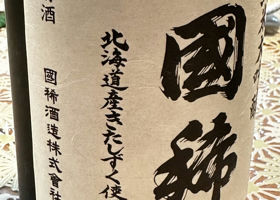 國稀
北海道産きたしずく使
酒
國稀酒造株式會社